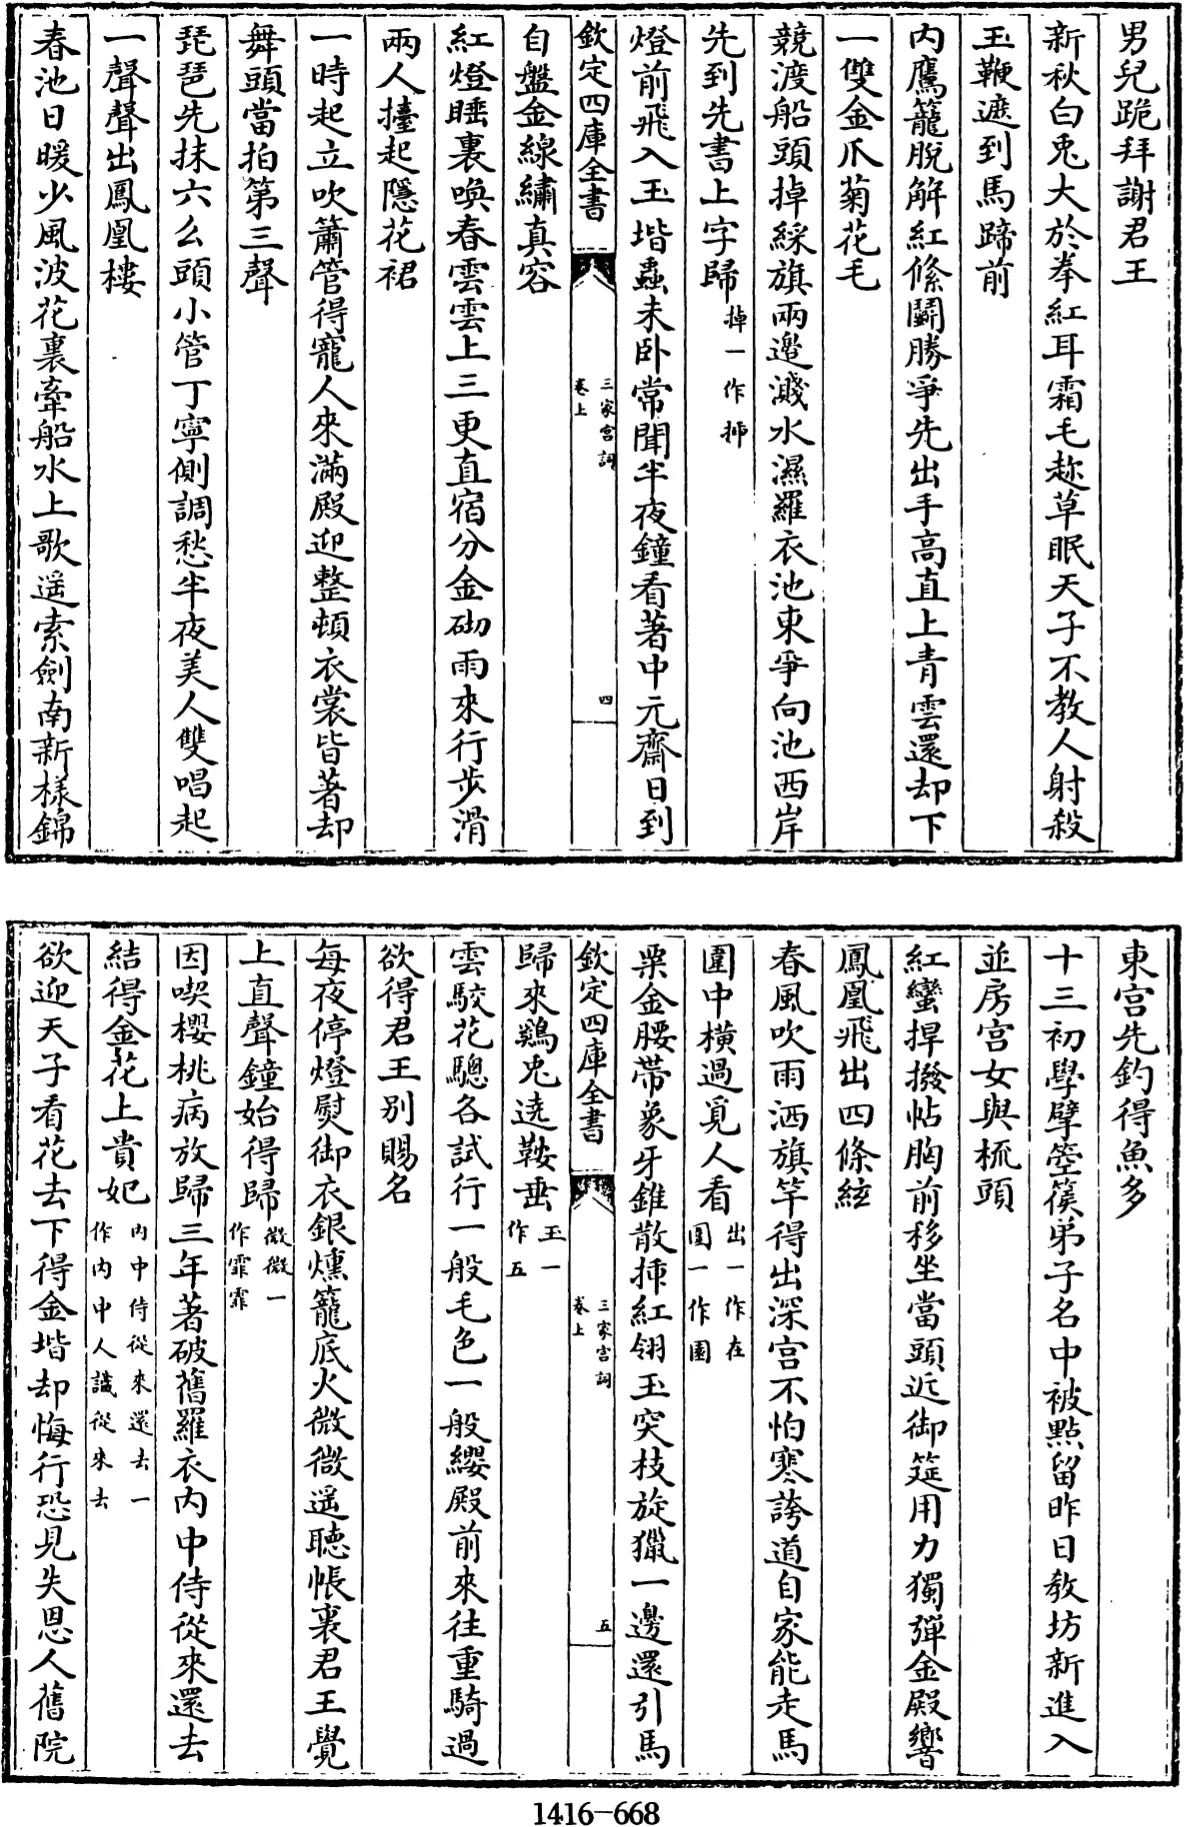 男兒跪拜謝君王
新秋白兎大於拳紅耳霜毛趂草眠天子不教人射殺
玉鞭遮到馬蹄前
内鷹籠脫解紅絛鬬勝爭先出手高直上青雲還却下
一雙金爪菊花毛
競渡船頭掉綵旗兩邉濺水濕羅衣池東爭向池西岸
先到先書上字歸掉一作揷
燈前飛入玉堦蟲未卧常聞半夜鐘看著中元齋日到
欽定四庫全書
三家宫詞
卷上
四
自盤金線繡真容
紅燈睡裏喚春雲雲上三更直宿分金砌雨來行步滑
兩人擡起隱花裙
一時起立吹簫管得寵人來滿殿迎整頓衣裳皆著却
舞頭當拍第三聲
琵琶先抹六么頭小管丁寧側調愁半夜美人雙唱起
一聲聲出鳳凰樓
春池日暖少風波花裏牽船水上歌遥索劍南新樣錦
東宫先釣得魚多
十三初學擘箜篌弟子名中被點留昨日教坊新進入
並房宫女與梳頭
紅蠻捍撥帖胸前移坐當頭近御筵用力獨彈金殿響
鳳凰飛出四條絃
春風吹雨洒旗竿得出深宫不怕寒誇道自家能走馬
圍中橫過覓人看出一作在
圍一作園
粟金腰帶象牙錐散揷紅翎玉突枝旋獵一邊還引馬
欽定四庫全書
三家宫詞
卷上
五
歸來鷄兎遶鞍垂玉一
作五
雲駮花驄各試行一般毛色一般纓殿前來往重騎過
欲得君王别賜名
每夜停燈熨御衣銀燻籠底火微微遥聽帳裏君王覺
上直聲鐘始得歸微微一
作霏霏
因喫櫻桃病放歸三年著破舊羅衣内中侍從來還去
結得金花上貴妃内中侍從來還去一
作内中人識從來去
欲迎天子看花去下得金堦却悔行恐見失恩人舊院
1416-668